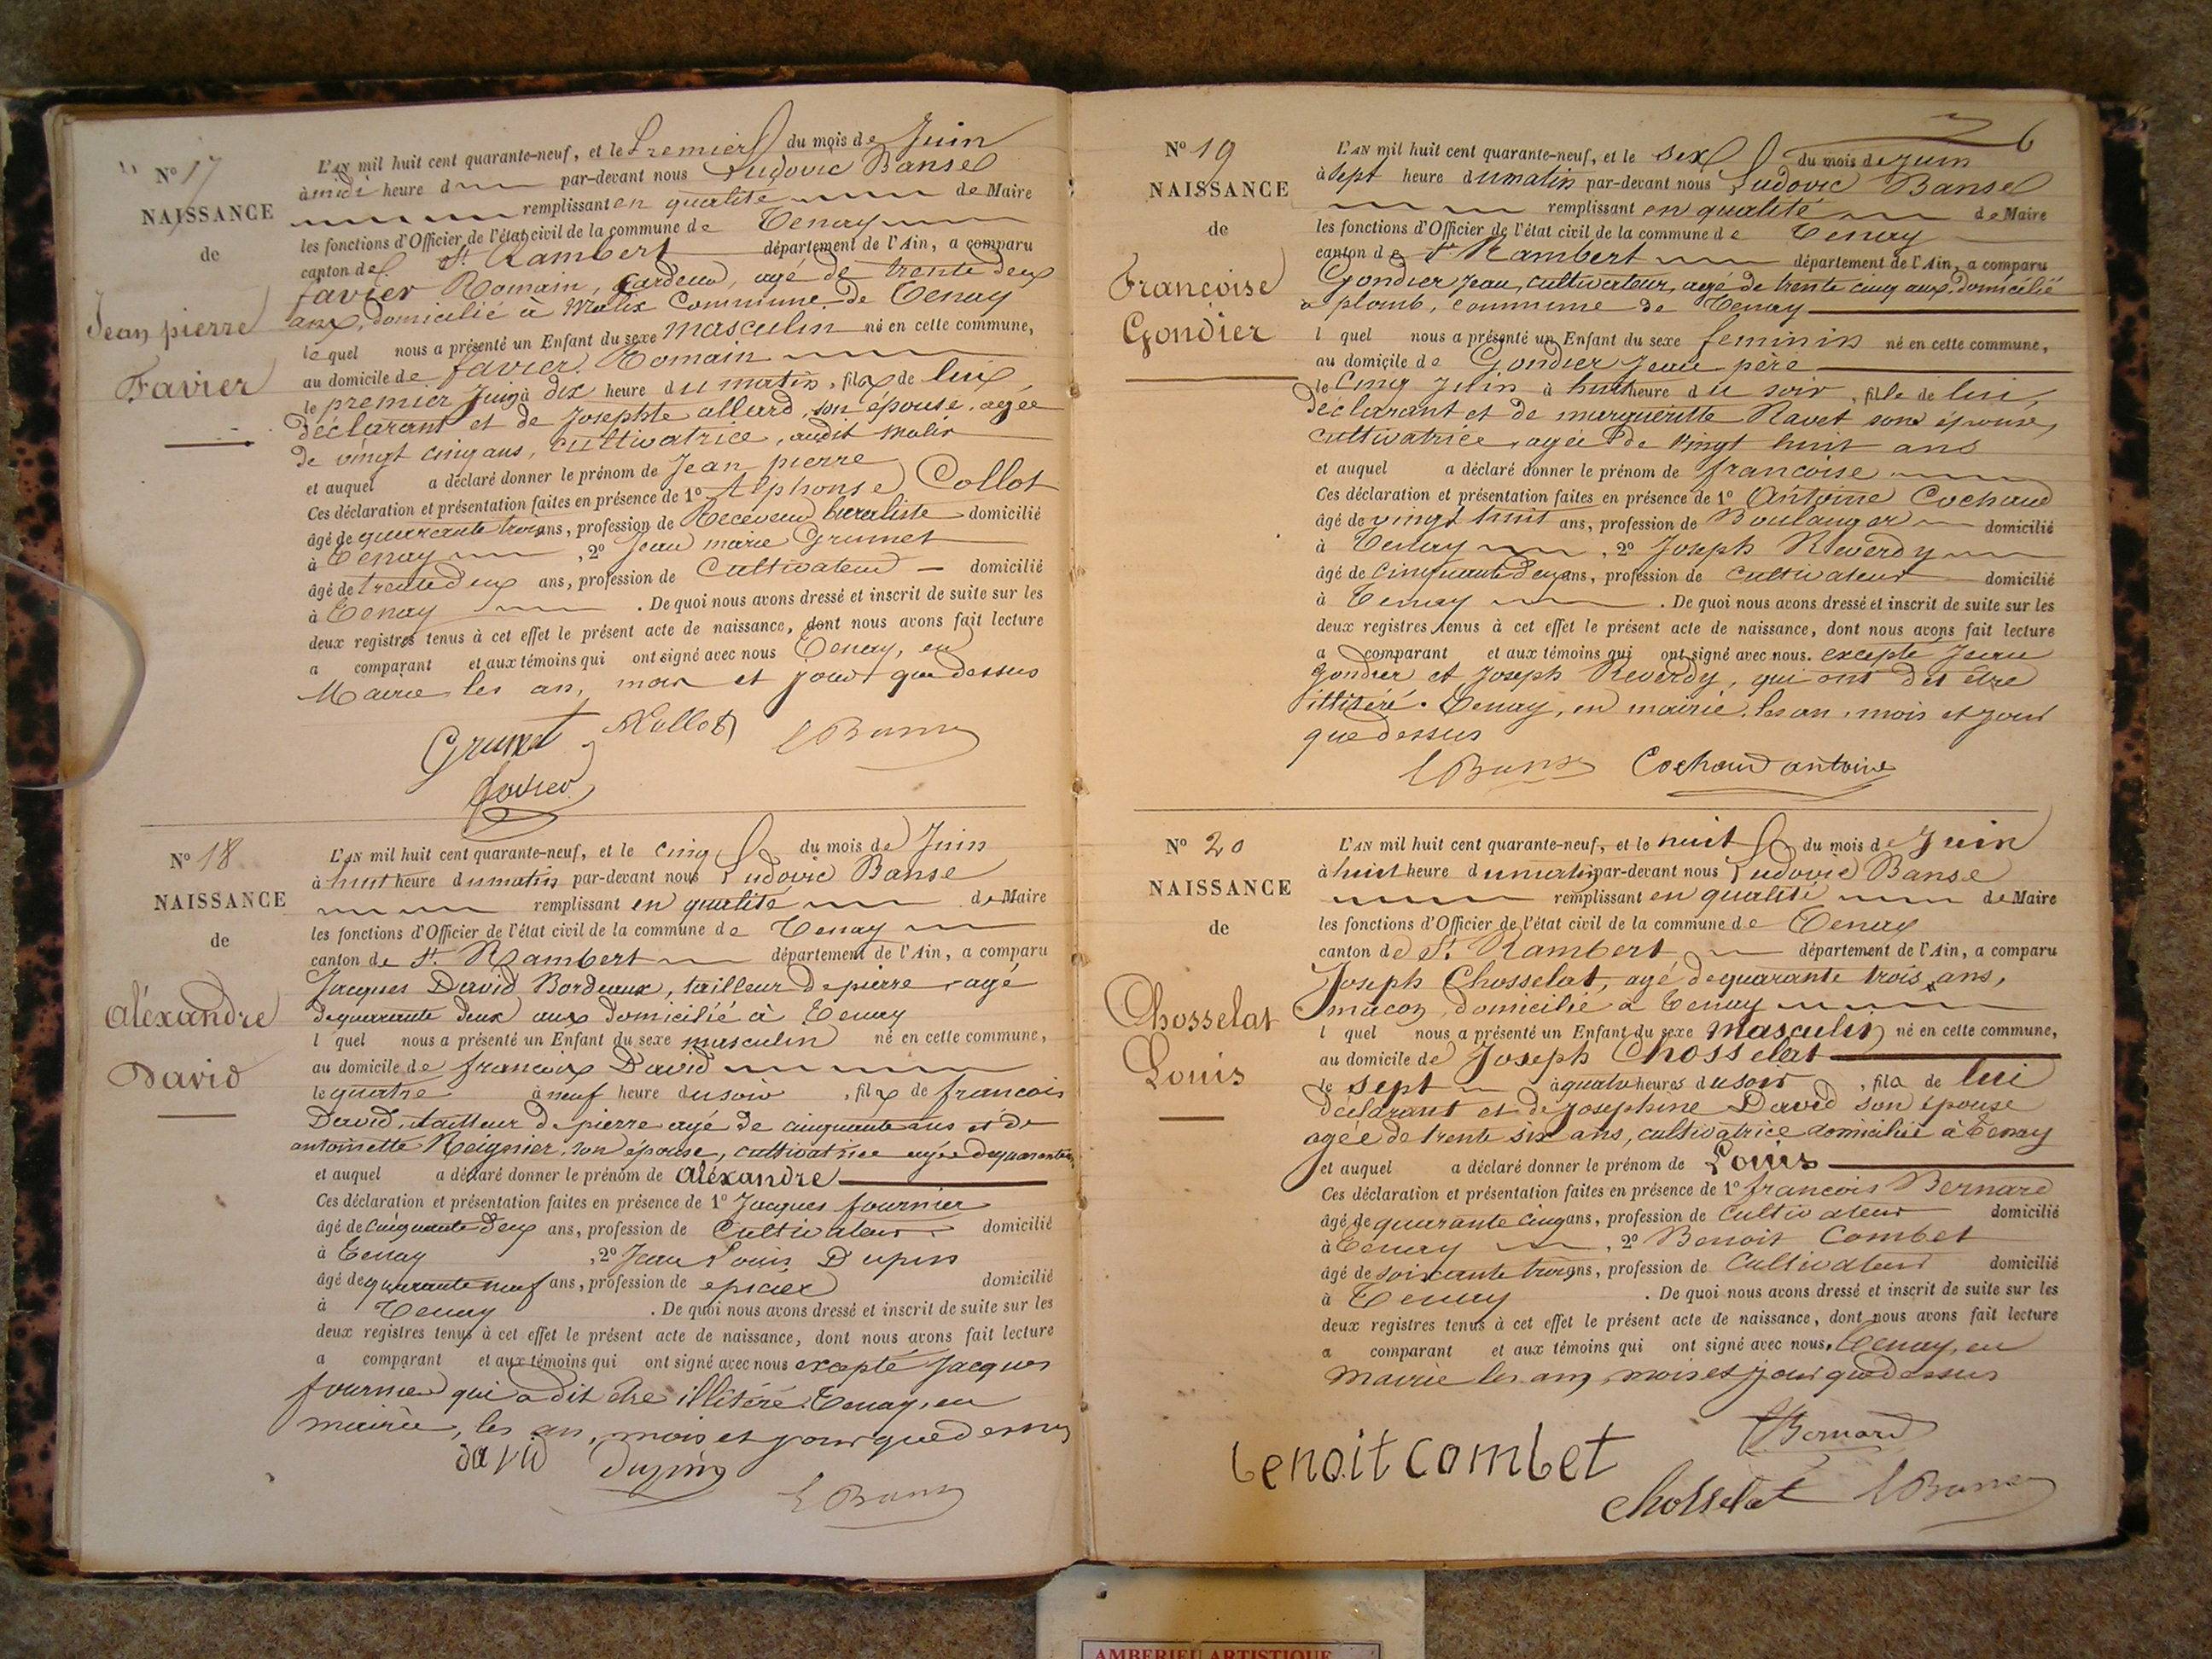 N° 17
NAISSANCE
de
Jean pierre
Favier
L'AN mil huit cent quarante-neuf, et le Premier du mois de Juin
à midi heure d par-devant nous Ludovic Bansel
remplissant en qualité de Maire
les fonctions d'Officier de l'état civil de la commune de Tenay
canton de St Rambert département de l'Ain, a comparu
favier Romain, cardeur, agé de trente deux
ans, domicilié à Malix Commune de Tenay
le quel nous a présenté un Enfant du sexe masculin né en cette commune,
au domicile de favier Romain
le premier Juin à dix heure du matin, fils de lui
déclarant et de Josephte allard, son épouse, agée
de vingt cinq ans, cultivatrice, audit Malix
et auquel a déclaré donner le prénom de Jean pierre
Ces déclaration et présentation faites en présence de 1° Alphonse Collot
âgé de quarante trois ans, profession de Receveur buraliste domicilié
à Tenay, 2° Jean marie Grumet
âgé de trente deux ans, profession de Cultivateur domicilié
à Tenay. De quoi nous avons dressé et inscrit de suite sur les
deux registres tenus à cet effet le présent acte de naissance, dont nous avons fait lecture
a comparant et aux témoins qui ont signé avec nous Tenay, en
Mairie les an, mois et jour que dessus
Grumet
Favier
N° 18
NAISSANCE
de
Aléxandre
David
L'AN mil huit cent quarante-neuf, et le cinq du mois de Juin
à huit heure du matin par-devant nous Ludovic Bansel
remplissant en qualité de Maire
les fonctions d'Officier de l'état civil de la commune de Tenay
canton de St. Rambert département de l'Ain, a comparu
Jacques David Bordeaux, tailleur de pierre agé
de quarante deux ans domicilié à Tenay
l quel nous a présenté un Enfant du sexe masculin né en cette commune,
au domicile de francois David
le quatre à neuf heure du soir, fils de francois
David, tailleur de pierre agé de cinquante ans et de
antoinette Reignier, son épouse, cultivatrice agée de quarante
et auquel a déclaré donner le prénom de Aléxandre
Ces déclaration et présentation faites en présence de 1° Jacques fournier
âgé de cinquante deux ans, profession de Cultivateur domicilié
à Tenay, 2° Jean Louis Dupin
âgé de quarante neuf ans, profession de epicier domicilié
à Tenay. De quoi nous avons dressé et inscrit de suite sur les
deux registres tenus à cet effet le présent acte de naissance, dont nous avons fait lecture
a comparant et aux témoins qui ont signé avec nous excepté Jacques
fournier qui a dit être illitéré. Tenay, en
mairie, les an, mois et jour que dessus
david Dupin
N° 19
NAISSANCE
de
Francoise
Gondier
6
L'AN mil huit cent quarante-neuf, et le six du mois de juin
à sept heure du matin par-devant nous Ludovic Bansel
remplissant en qualité de Maire
les fonctions d'Officier de l'état civil de la commune de Tenay
canton de St Rambert département de l'Ain, a comparu
Gondier Jean, cultivateur, agé de trente cinq ans, domicilié
a plomb, commune de Tenay
l quel nous a présenté un Enfant du sexe feminin né en cette commune,
au domicile de Gondier Jean père
le Cinq Juin à huit heure du soir, fille de lui,
déclarant et de margueritte Ravet son épouse,
cultivatrice, agée de vingt huit ans
et auquel a déclaré donner le prénom de francoise
Ces déclaration et présentation faites en présence de 1° Antoine Cochaud
âgé de vingt huit ans, profession de Boulanger domicilié
à Tenay, 2° Joseph Reverdy
âgé de Cinquante deux ans, profession de cultivateur domicilié
à Tenay. De quoi nous avons dressé et inscrit de suite sur les
deux registres tenus à cet effet le présent acte de naissance, dont nous avons fait lecture
a comparant et aux témoins qui ont signé avec nous. excepté Jean
Gondier et Joseph Reverdy, qui ont dit être
illitéré. Tenay, en mairie, les an, mois et jour
que dessus
Cochaud antoine
N° 20
NAISSANCE
de
Chosselat
Louis
L'AN mil huit cent quarante-neuf, et le huit du mois de Juin
à huit heure du matin par-devant nous Ludovic Bansel
remplissant en qualité de Maire
les fonctions d'Officier de l'état civil de la commune de Tenay
canton de St. Rambert département de l'Ain, a comparu
Joseph Chosselat, agé de quarante trois ans,
macon, domicilié a Tenay
l quel nous a présenté un Enfant du sexe masculin né en cette commune,
au domicile de Joseph Chosselat
le sept à quatre heures du soir, fils de lui
déclarant et de Josephine David son épouse
agée de trente six ans, cultivatrice domiciliée à Tenay
et auquel a déclaré donner le prénom de Louis
Ces déclaration et présentation faites en présence de 1° francois Bernard
âgé de quarante cinq ans, profession de Cultivateur domicilié
à Tenay, 2° Benoit Combet
âgé de soixante trois ans, profession de Cultivateur domicilié
à Tenay. De quoi nous avons dressé et inscrit de suite sur les
deux registres tenus à cet effet le présent acte de naissance, dont nous avons fait lecture
a comparant et aux témoins qui ont signé avec nous. Tenay, en
mairie les an, mois et jour que dessus
Bernard
benoit combet
chosselat
AMBERIEU ARTISTIQUE